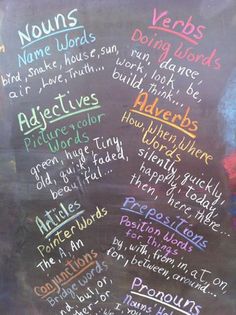 Nouns
Name Words
bird, snake, house, sun,
air, Love, Truth...
Adjectives
Picture + color
Words
green, huge, Tiny,
old, quiet, faded,
beautiful...
Articles
Pointer Words
The, A, An
Conjunctions
Bridge words
and, but, or,
Verbs
Doing Words
run, dance,
work, look, be,
build, think...
Adverbs
How, When, Where
Words
silently, quickly,
happily, today,
then, here, there...
Prepositions
Position Words
for Things
by, with, from, in, at, on,
for, between, around...
Pronouns
Nouns